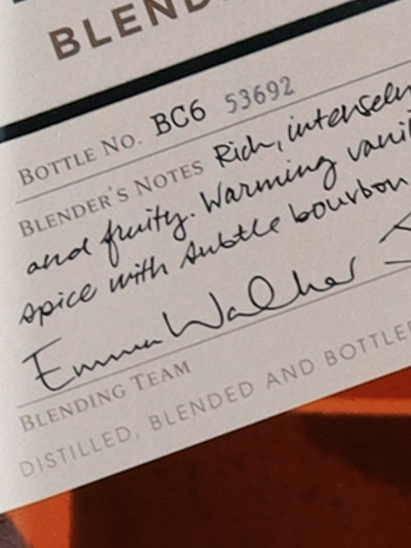 BLEND
BOTTLE No. BC6 53692
BLENDER'S NOTES Rich, intensely
and fruity. Warming vanil
spice with subtle bourbon
Emma Walker
BLENDING TEAM
DISTILLED, BLENDED AND BOTTLE